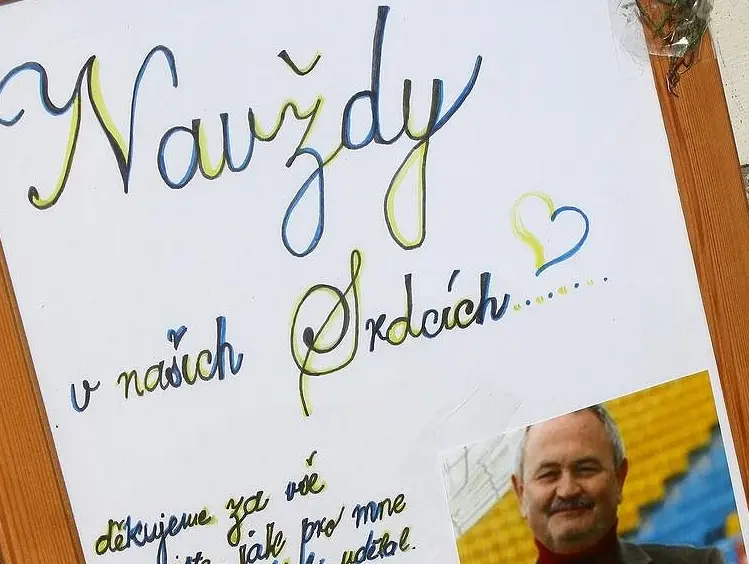 Navždy
v našich Srdcích........
děkujeme za vše
jak pro mne
udělal.